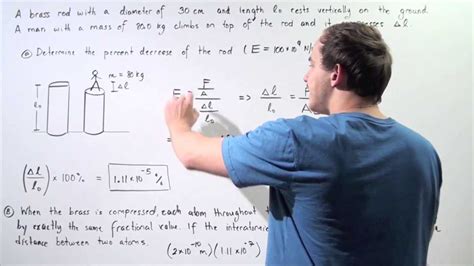 A brass rod with a diameter of 30 cm and length l₀ rests vertically on the ground.
A man with a mass of 80.0 kg climbs on top of the rod and it compresses Δl.
Ⓐ Determine the percent decrease of the rod (E = 100×10⁹ N/
m = 80 kg
Δl
l₀
E = F/A / Δl/l₀ => Δl/l₀ = F/A
=
(Δl/l₀) × 100% = 1.11×10⁻⁵ %
Ⓑ When the brass is compressed, each atom throughout
by exactly the same fractional value. If the interatomic
distance between two atoms.
(2×10⁻¹⁰ m)(1.11×10⁻⁷)